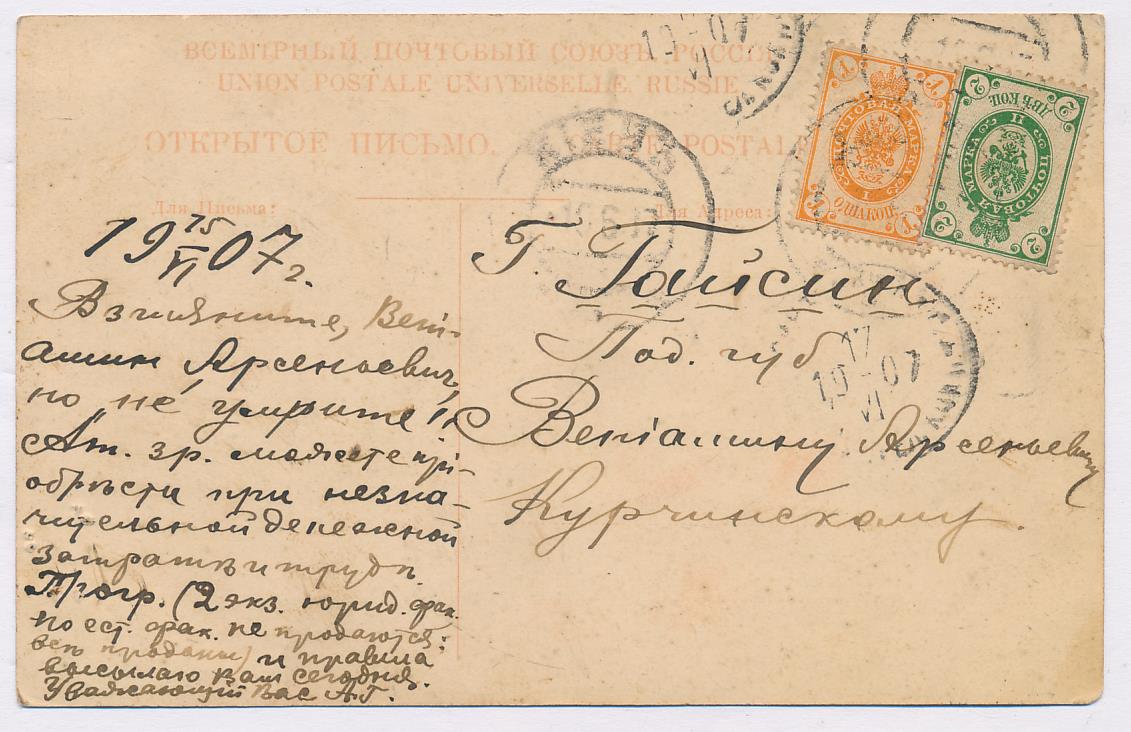 ВСЕМІРНЫЙ ПОЧТОВЫЙ СОЮЗЪ. РОССІЯ
UNION POSTALE UNIVERSELLE. RUSSIE
ОТКРЫТОЕ ПИСЬМО. CARTE POSTALE
Для Письма:
Для Адреса:
19 15/VI 07 г.
Взгляните, Вені-
аминъ Арсеньевич,
но не умрите!!
Ат. зр. можете прі-
обрѣсти при незна-
чительной денежной
затратѣ и трудѣ.
Прогр. (2 экз. юрид. фак.
по ест. фак. не продаются:
всѣ проданы) и правила
высылаю Вам сегодня.
Уважающій Вас А.Г.
Г. Гайсин
Под. губ
Веніамину Арсеньевичу
Курчинскому.
ПОЧТОВАЯ МАРКА
1
ОДНА КОП.
2
ДВѢ КОП.
ПОЧТОВАЯ МАРКА
17
19-07
VI
19-07
VI